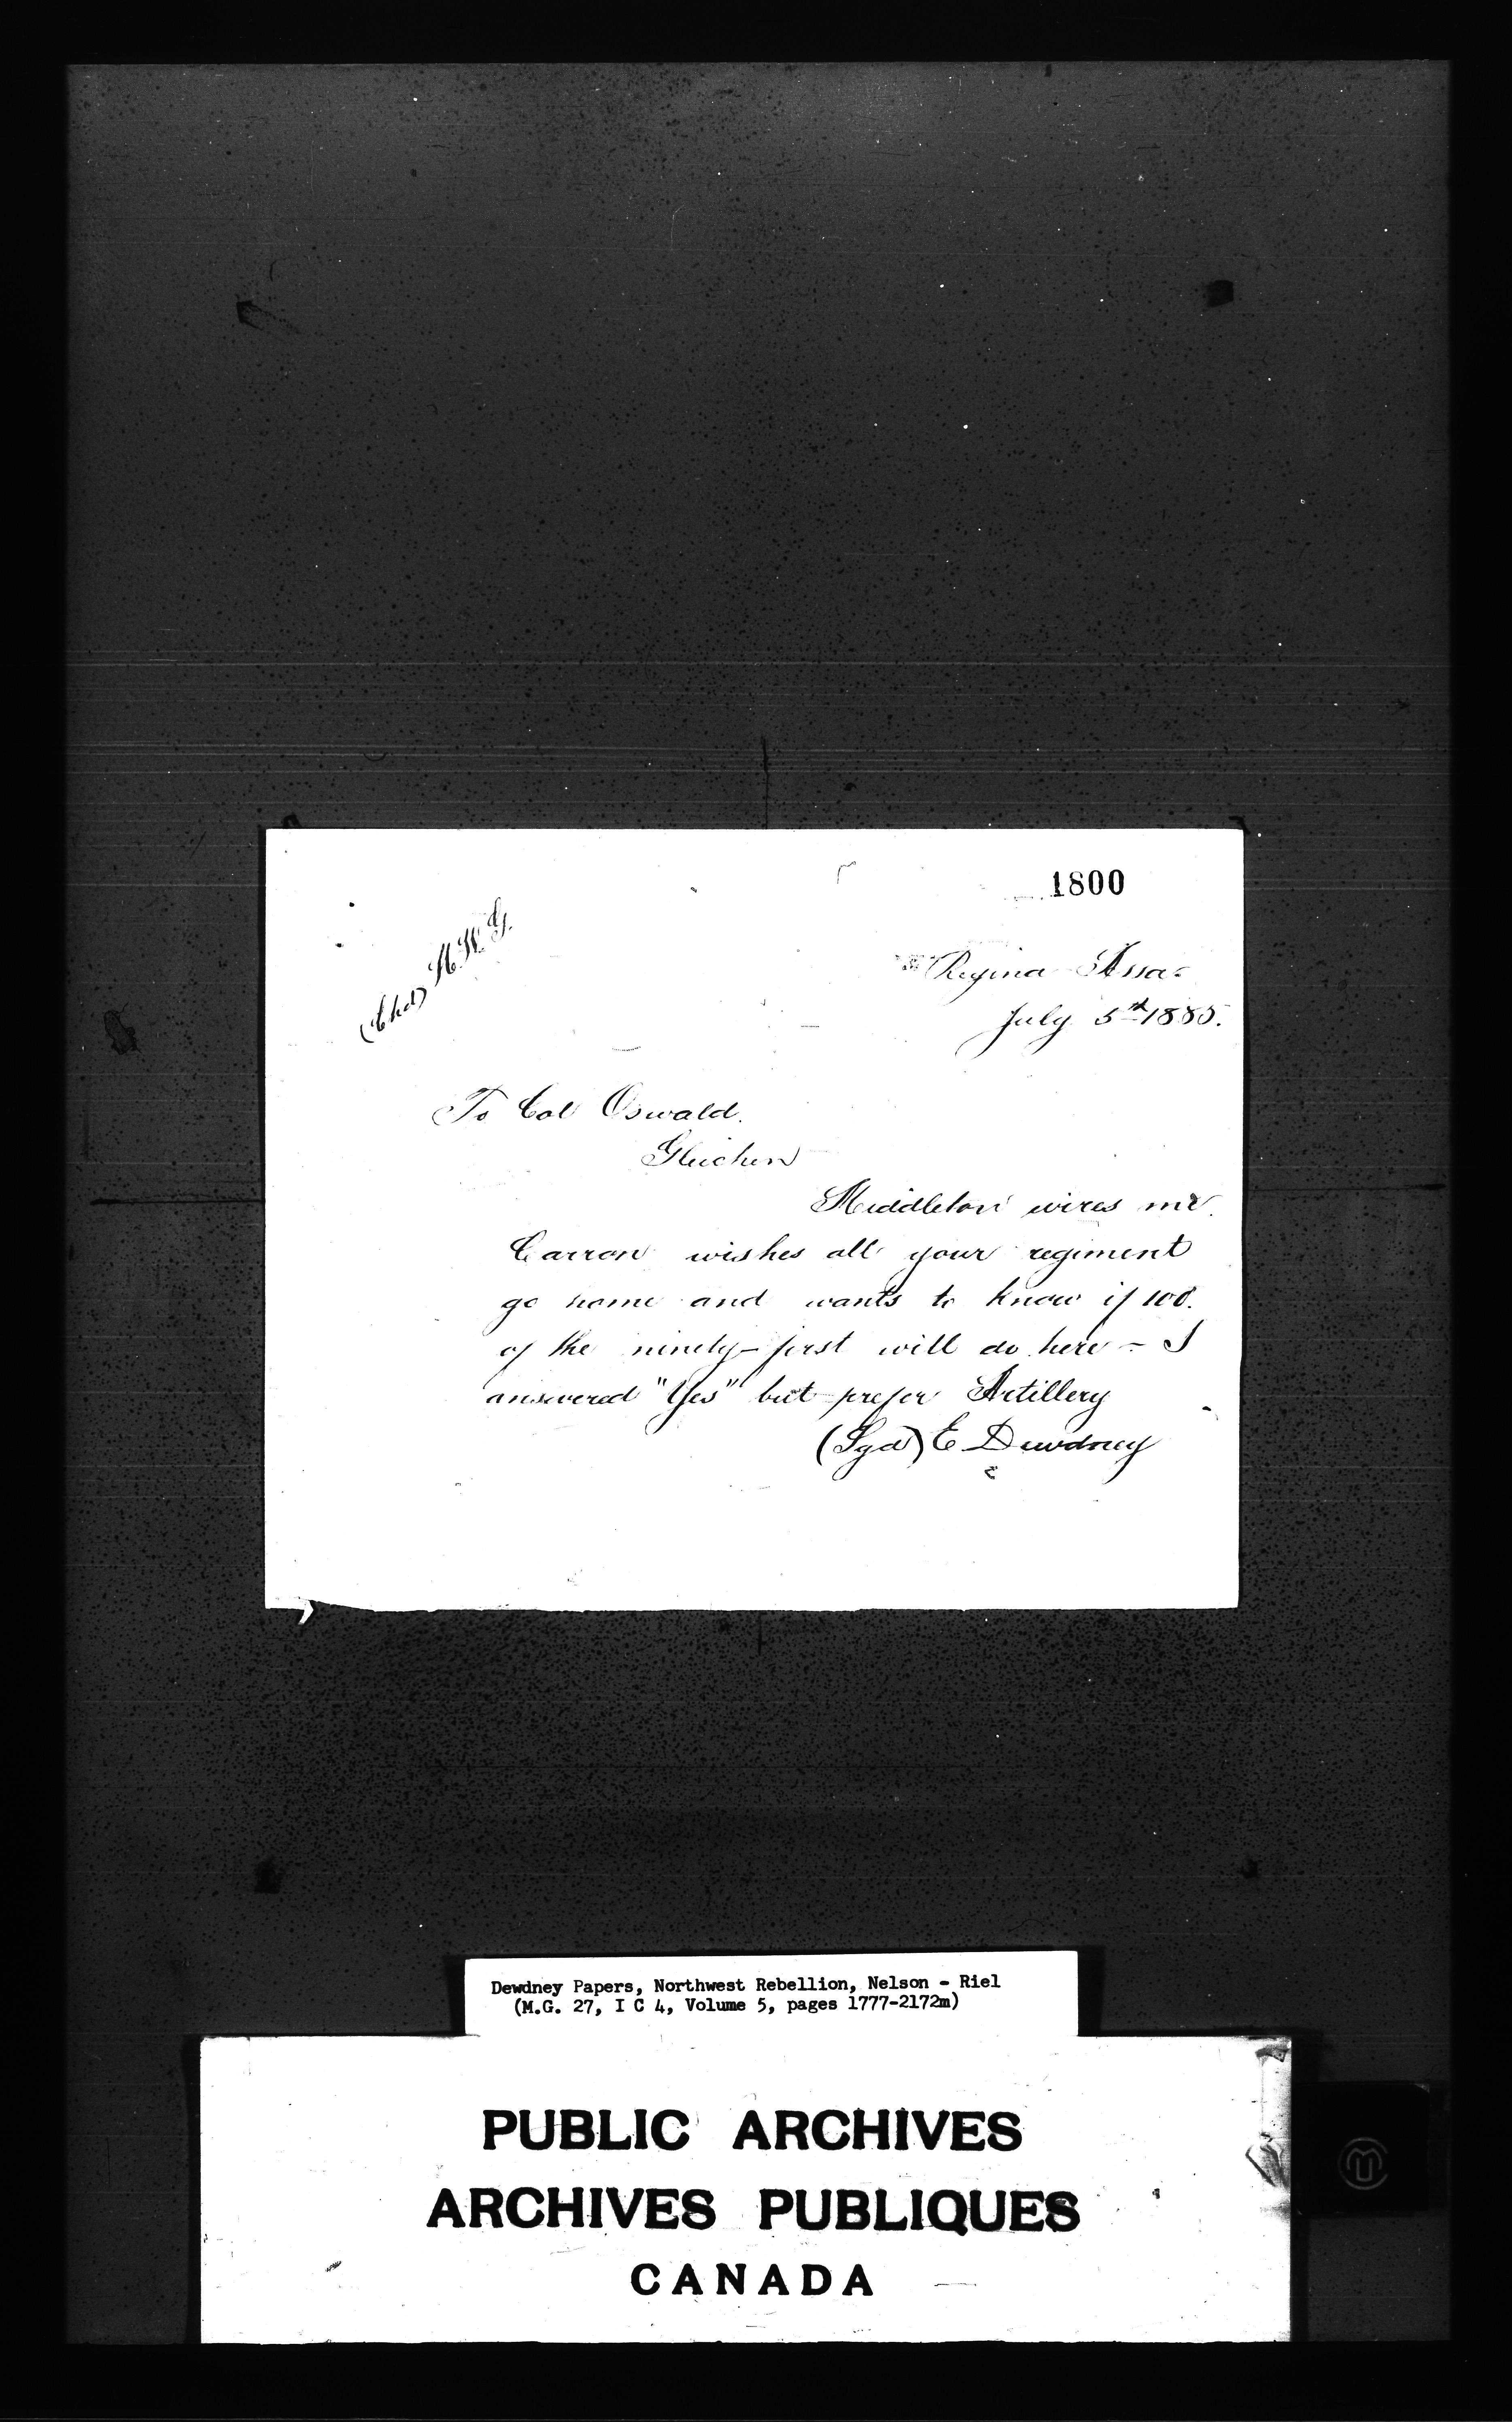 1800
(Chd) N.W.G.
Regina Assa-
July 5th 1885.
To Col Oswald.
Gleichen
Middleton wires me.
Carron wishes all your regiment
go home and wants to know if 100.
of the ninety-first will do here - I
answered "Yes" but prefer Artillery
(Sgd) E Dewdney
Dewdney Papers, Northwest Rebellion, Nelson - Riel
(M.G. 27, I C 4, Volume 5, pages 1777-2172m)
PUBLIC ARCHIVES
ARCHIVES PUBLIQUES
CANADA